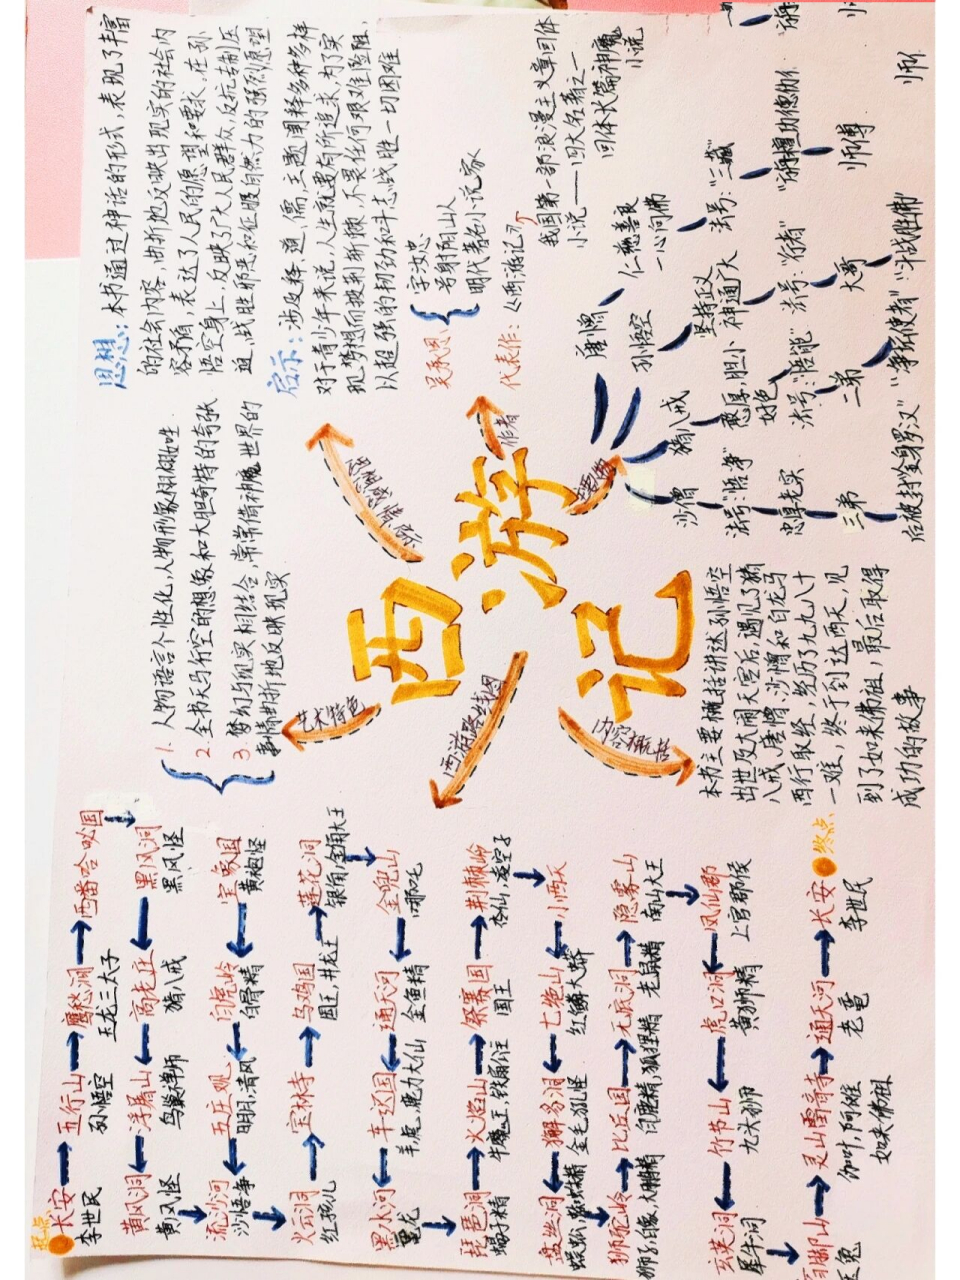 西游记
艺术特色
1. 人物语言个性化,人物形象栩栩如生
2. 全书天马行空的想象和大胆奇特的夸张
3. 梦幻与现实相结合,常常借神魔世界的
事情曲折地反映现实
思想感情
思想:本书通过神话的形式,表现了丰富
的社会内容,曲折地反映出现实的社会内
容矛盾,表达了人民的愿望和要求.在孙
悟空身上,反映了大人民群众,反抗专制压
迫,战胜邪恶和征服自然力的强烈愿望
启示:涉及释,道,儒,主题阐释多种多样
对于青少年来说,人生就要有所追求,为了实
现梦想而披荆斩棘,不畏任何艰难险阻,
以超强的韧劲和斗志战胜一切困难
作者
吴承恩:
字汝忠
号射阳山人
明代著名小说家
代表作:《西游记》
我国第一部浪漫主义章回体
小说——四大名著之一
回体长篇神魔
小说
唐僧
仁慈善良
一心向佛
法号:“三藏”
“旃檀功德佛”
师傅
孙悟空
坚持正义
神通广大
法号:“行者”
大哥
“斗战胜佛”
猪八戒
憨厚,胆小
好色
法号:“悟能”
二弟
“净坛使者”
沙僧
法号:“悟净”
忠厚老实
三弟
后被封“金身罗汉”
内容概括
本书主要概括讲述孙悟空
出世及大闹天宫后,遇见了猪
八戒、唐僧、沙僧和白龙马
西行取经,经历了九九八十
一难,终于到达西天,见
到了如来佛祖,最后取得
成功的故事
西游路线图
起点
长安
李世民
五行山
孙悟空
鹰愁涧
玉龙三太子
西番哈咇国
黑风洞
黑风怪
高老庄
猪八戒
浮屠山
乌巢禅师
黄风洞
黄风怪
流沙河
沙悟净
五庄观
明月,清风
白虎岭
白骨精
宝象国
黄袍怪
莲花洞
银角,金角大王
乌鸡国
国王,井龙王
宝林寺
火云洞
红孩儿
黑水河
鼍龙
车迟国
羊,虎,鹿力大仙
通天河
金鱼精
金兜山
琵琶洞
蝎子精
火焰山
牛魔王,铁扇公主
祭赛国
国王
荆棘岭
杏仙,凌空子
小西天
七绝山
红鳞大蟒
獬豸洞
金毛犼怪
盘丝洞
蜈蚣,蜘蛛精
狮驼岭
狮子,白像,大鹏精
比丘国
白鹿精,狐狸精
无底洞
老鼠精
隐雾山
南山大王
凤仙郡
上官郡侯
虎口洞
黄狮精
竹节山
九头狮
玄英洞
犀牛洞
灵山雷音寺
伽叶,阿傩
如来佛祖
通天河
老鼋
长安
李世民
终点